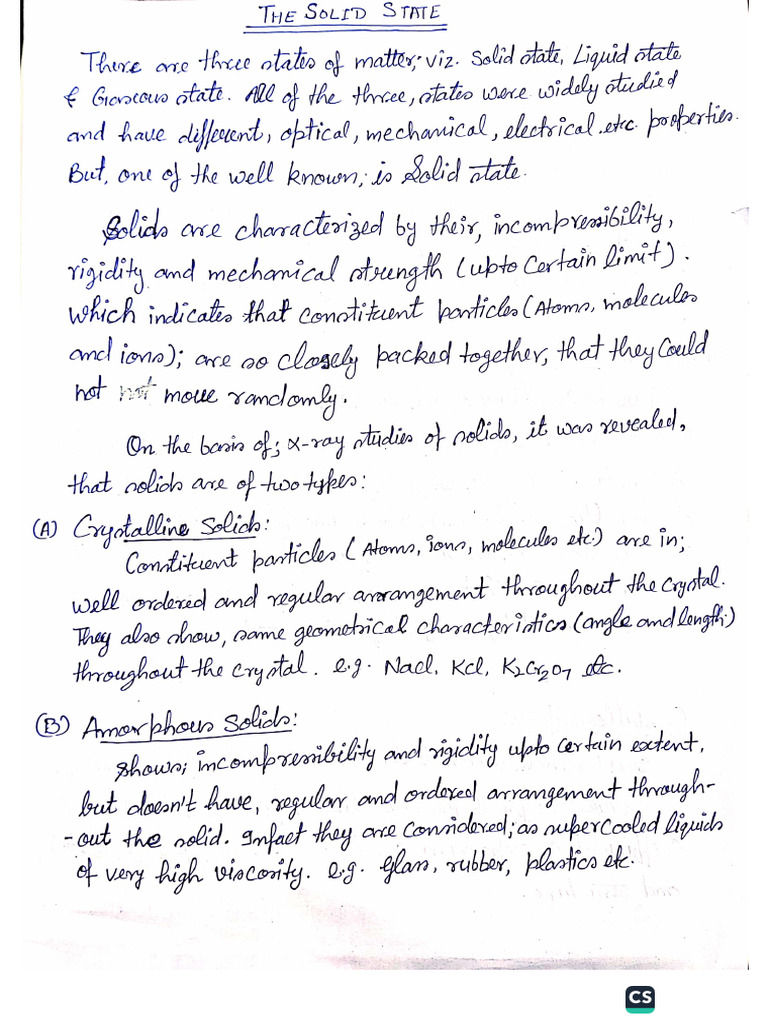 THE SOLID STATE
There are three states of matter; viz. Solid state, Liquid state
& Gaseous state. All of the three, states were widely studied
and have different, optical, mechanical, electrical etc. properties.
But, one of the well known; is Solid state.
Solids are characterized by their, incompressibility,
rigidity and mechanical strength (upto Certain limit).
which indicates that constituent particles (Atoms, molecules
and ions); are so closely packed together, that they Could
not not move randomly.
On the basis of; X-ray studies of solids, it was revealed,
that solids are of two types:
(A) Crystalline Solids:
Constituent particles (Atoms, ions, molecules etc.) are in;
well ordered and regular arrangement throughout the crystal.
They also show, same geometrical characteristics (angle and length)
throughout the crystal. e.g. Nacl, Kcl, K2Cr2O7 etc.
(B) Amorphous Solids:
Shows; incompressibility and rigidity upto certain extent,
but doesn't have, regular and ordered arrangement through-
-out the solid. Infact they are Considered; as supercooled liquids
of very high viscosity. e.g. glass, rubber, plastics etc.
CS